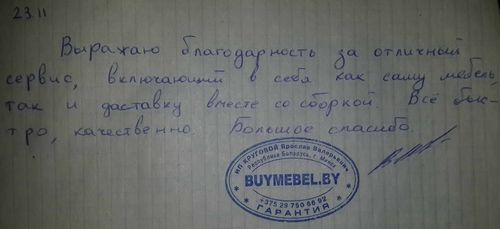 23.11
Выражаю благодарность за отличный
сервис, включающий в себя как саму мебель,
так и доставку вместе со сборкой. Всё быс-
тро, качественно. Большое спасибо.
ИП КРУГОВОЙ Ярослав Валерьевич
Республика Беларусь, г. Минск
BUYMEBEL.BY
+375 29 750 66 92
ГАРАНТИЯ